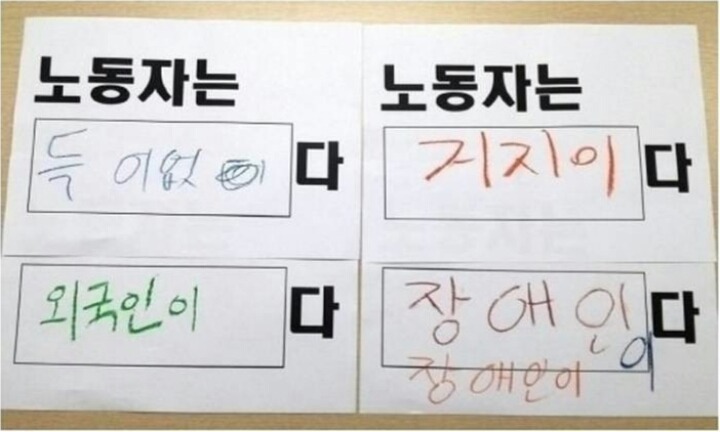 노동자는
득 이없 이 다
노동자는
거지이 다
외국인이 다
장애인이 다
장애인이